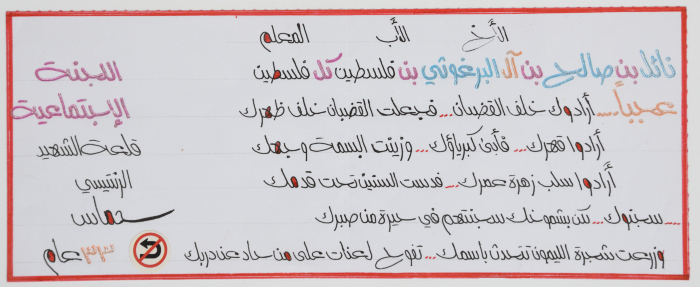 الأخ الأب المعلم
نائل بن صالح بن آل البرغوثي بن فلسطين كل فلسطين
عجباً.... أرادوك خلف القضبان... فجعلت القضبان خلف ظهرك
أرادوا قهرك... فأبى كبرياؤك... وزينت البسمة وجهك
أرادوا سلب زهرة عمرك... فدست الستين تحت قدمك
.... سجنوك... كن بشموخك سجنتهم في حيرة من صبرك
وزرعت شجرة الليمون تتحدث باسمك... تفوح لعنات على من حاد عن دربك
اللجنة
الإجتماعية
قلعة الشهيد
الرنتيسي
حماس
٣٣ عام